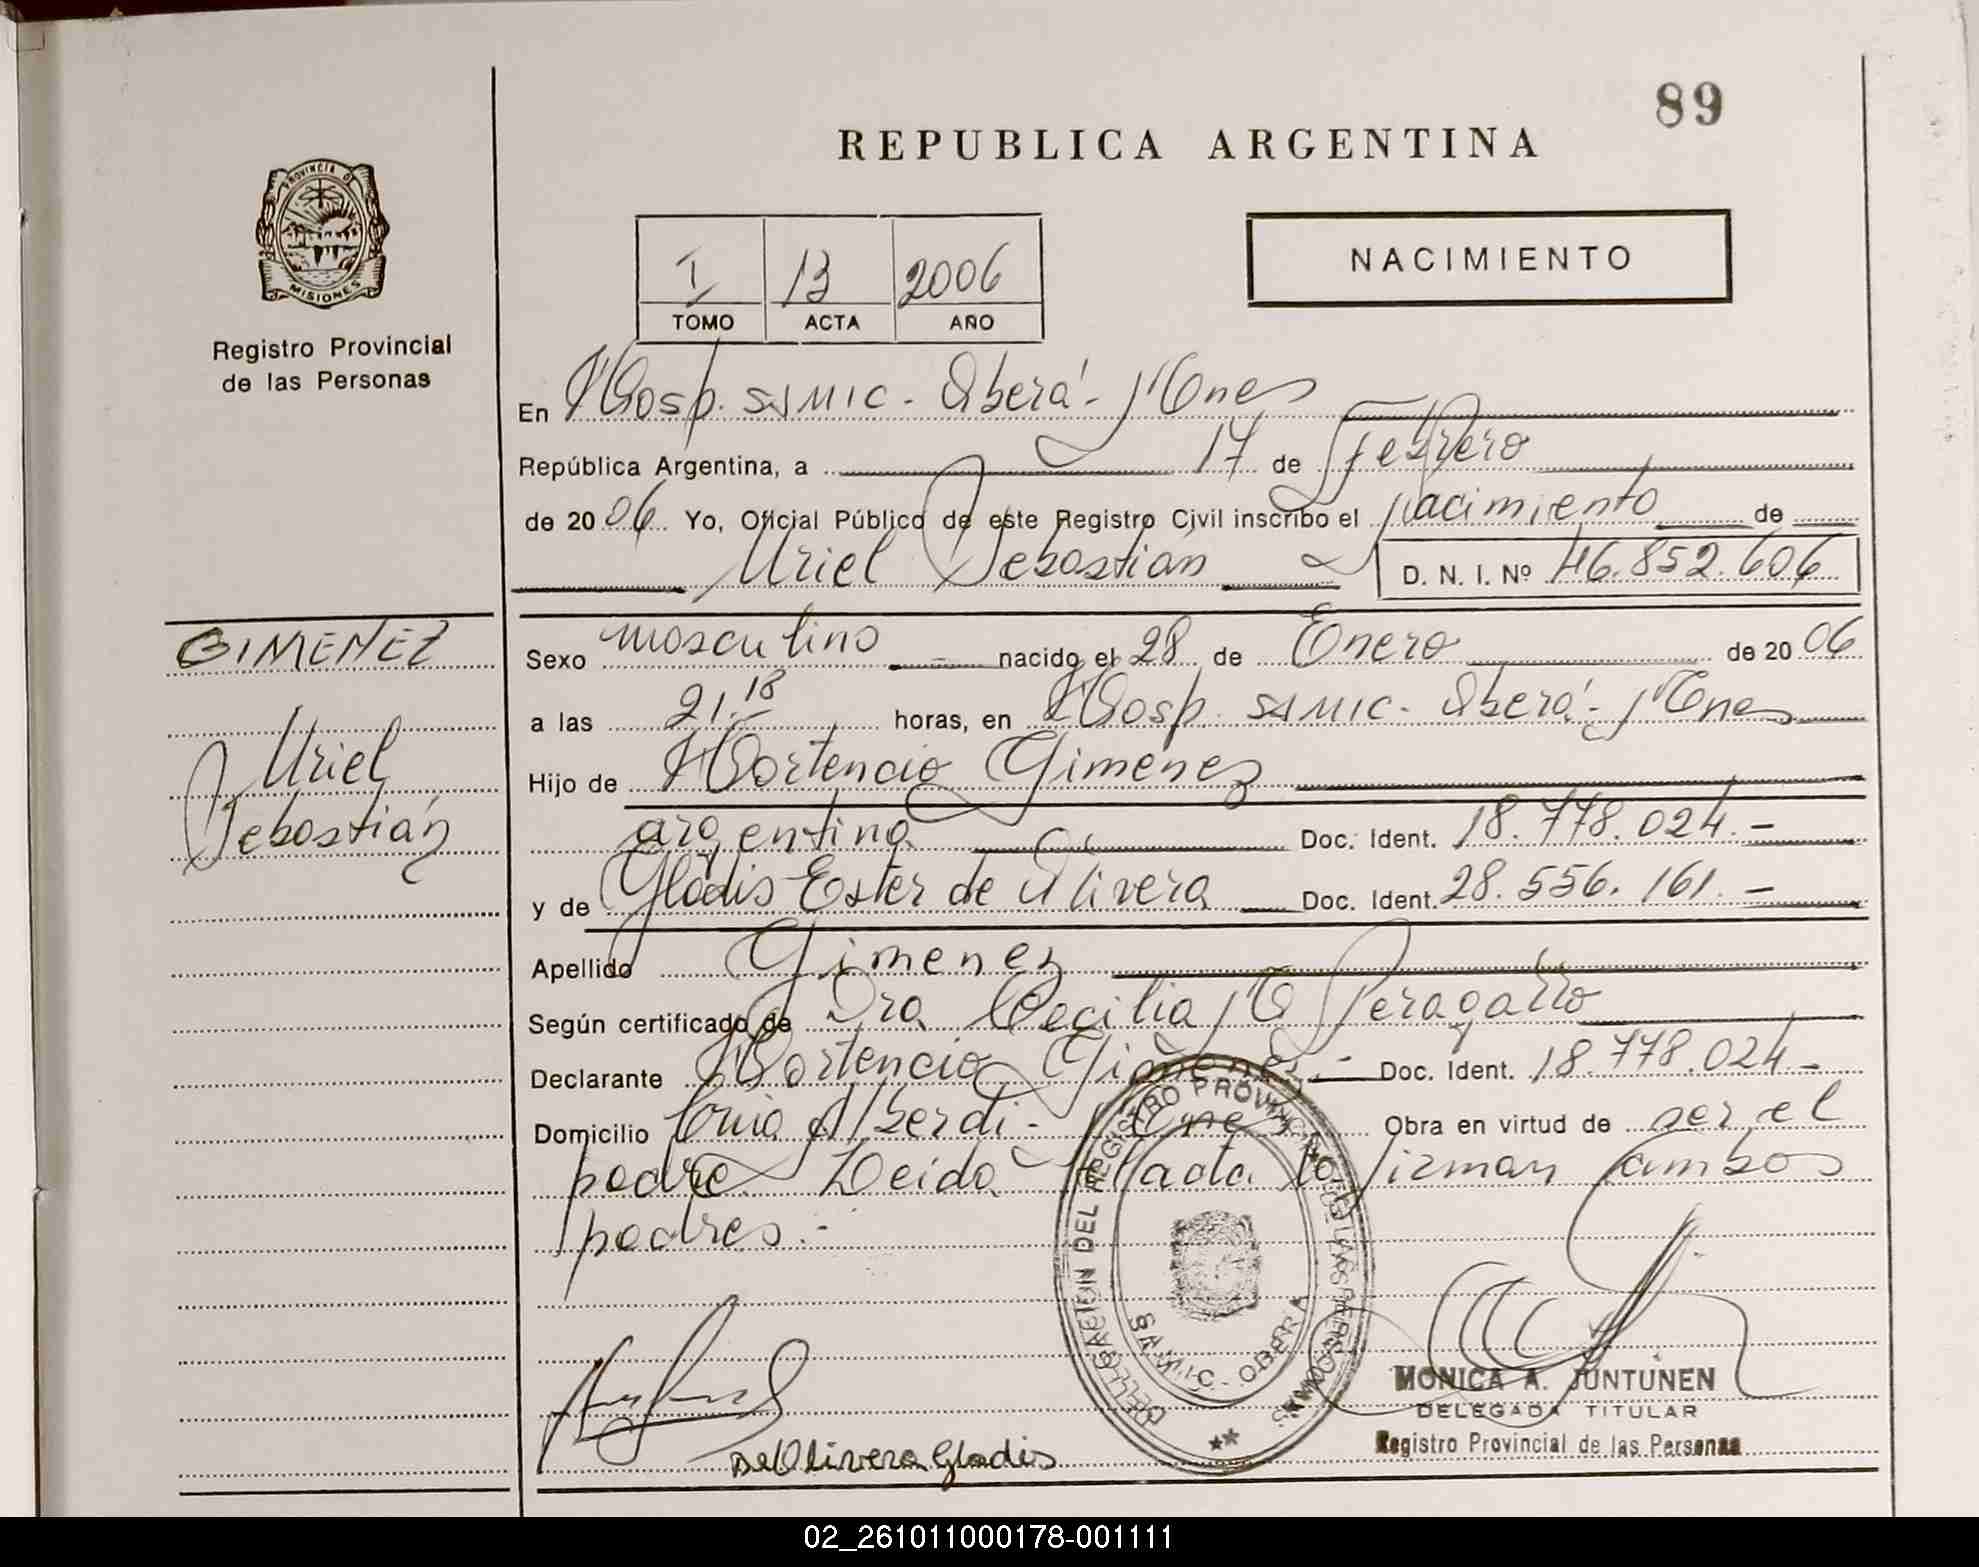 89
REPUBLICA ARGENTINA
PROVINCIA DE
MISIONES
Registro Provincial
de las Personas
I 13 2006
TOMO ACTA AÑO
NACIMIENTO
En Hosp. SAMIC - Oberá - Mnes
República Argentina, a 17 de Febrero
de 2006 Yo, Oficial Público de este Registro Civil inscribo el Nacimiento de
Uriel Sebastián D. N. I. Nº 46.852.606
GIMENEZ
Uriel
Sebastián
Sexo masculino nacido el 28 de Enero de 2006
a las 21.18 horas, en Hosp. SAMIC - Oberá - Mnes
Hijo de Hortencio Gimenez
argentina Doc. Ident. 18.778.024.-
y de Gladis Ester de Olivera Doc. Ident. 28.556.161.-
Apellido Gimenez
Según certificado de Dra Cecilia M Peragallo
Declarante Hortencio Gimenez.- Doc. Ident. 18.778.024.-
Domicilio Cnia Alberdi - Mnes Obra en virtud de ser el
padre. Leida el acta la firman ambos
padres.-
DELEGACION DEL REGISTRO PROVINCIAL DE LAS PERSONAS
SAMIC - OBERA
De Olivera Gladis
MONICA A. JUNTUNEN
DELEGADA TITULAR
Registro Provincial de las Personas
02_261011000178-001111